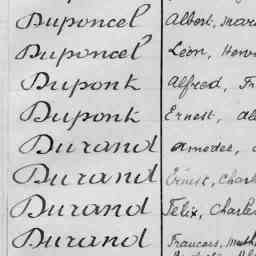 Duponcel Albert, Mari
Duponcel Léon, Henri
Dupont Alfred, Fr
Dupont Ernest, al
Durand Amedee,
Durand Ernest, Charl
Durand Félix, Charles
Durand Francois, Math